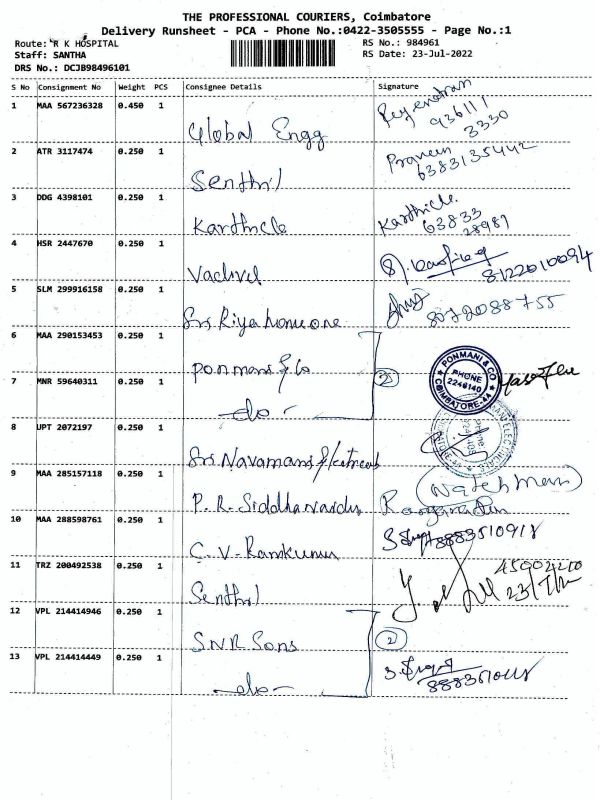 THE PROFESSIONAL COURIERS, Coimbatore
Delivery Runsheet - PCA - Phone No.:0422-3505555 - Page No.:1
Route: R K HOSPITAL
RS No.: 984961
Staff: SANTHA
RS Date: 23-Jul-2022
DRS No.: DCJB98496101
S No Consignment No Weight PCS Consignee Details Signature
1 MAA 567236328 0.450 1 Global Engg
936111
3330
2 ATR 3117474 0.250 1 Senthil Praveen
6383135442
3 DDG 4398101 0.250 1 Karthick Karthick.
63833
28981
4 HSR 2447670 0.250 1 Vadivel
8122010094
5 SLM 299916158 0.250 1 Sri Riya
8072088755
6 MAA 290153453 0.250 1 Ponmani & Co
PONMANI & CO
PHONE
2246140
COIMBATORE
7 MNR 59640311 0.250 1 -do- 2
8 UPT 2072197 0.250 1 Sri Navamani Electricals
9 MAA 285157118 0.250 1 P. R. (Watchman)
10 MAA 288598761 0.250 1 C. V. Ramkumar
8883510918
11 TRZ 200492538 0.250 1 Senthil
45002210
12 VPL 214414946 0.250 1 SNR Sons 2
13 VPL 214414449 0.250 1 -do-